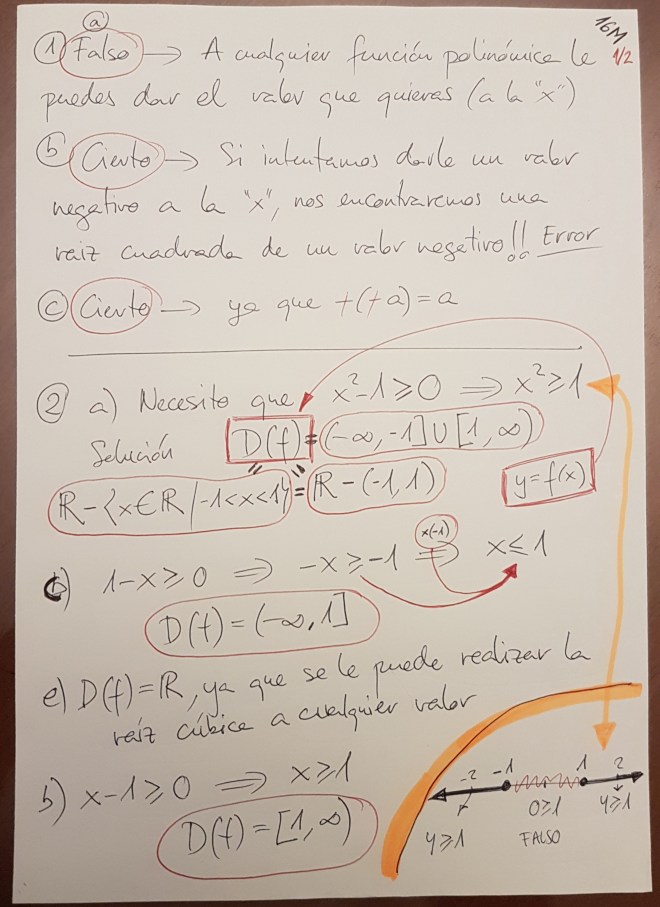 16M
1/2
ⓐ
① Falso → A cualquier función polinómica le
puedes dar el valor que quieras (a la "x")
ⓑ Cierto → Si intentamos darle un valor
negativo a la "x", nos encontraremos una
raiz cuadrada de un valor negativo!! Error
ⓒ Cierto → ya que +(+a) = a
② a) Necesito que x²-1≥0 ⇒ x²≥1
Solución D(f)=(-∞,-1]∪[1,∞)
ℝ-{x∈ℝ/-1<x<1}=ℝ-(-1,1)
y=f(x)
x(-1)
c) 1-x≥0 ⇒ -x≥-1 ⇒ x≤1
D(f)=(-∞,1]
e) D(f)=ℝ, ya que se le puede realizar la
raíz cúbica a cualquier valor
b) x-1≥0 ⇒ x≥1
D(f)=[1,∞)
-2 -1 1 2
4≥1 0≥1 4≥1
FALSO